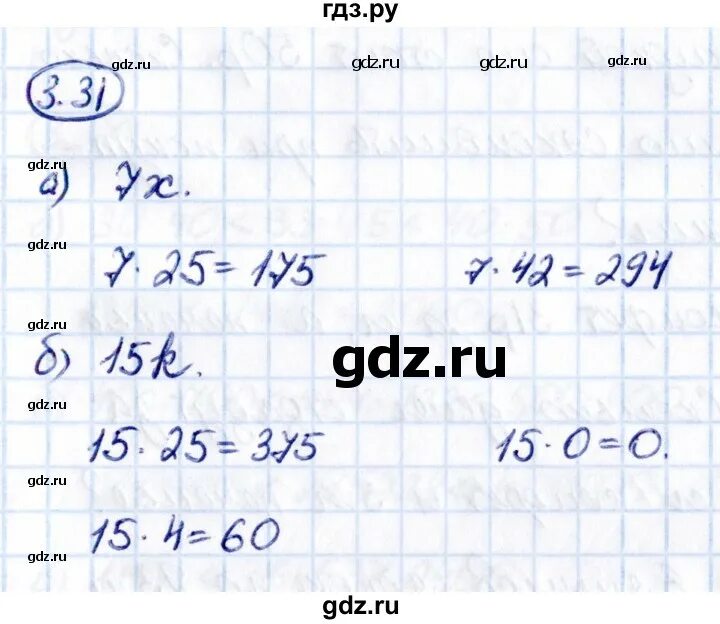 гдз.ру
gdz.ru gdz.ru gdz.ru
3.31
gdz.ru
а) 7x.
gdz.ru
7·25=175 7·42=294
gdz.ru
б) 15k. gdz.ru
gdz.ru
15·25=375 15·0=0.
gdz.ru
15·4=60
gdz.ru
gdz.ru